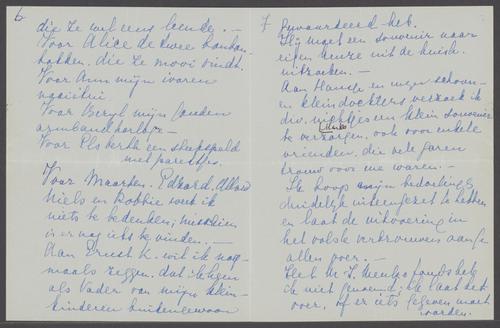 6
die ze wel eens leende. —
Voor Alice de twee bonbon-
bakken, die ze mooi vindt.
Voor Ann mijn ivoren
naaietui
Voor Beryl mijn gouden
armbandhorloge —
Voor Elsbeth een sleepspeld
met pareltjes.
Voor Maarten, Edzard, Allard
Niels en Robbie weet ik
niets te bedenken; misschien
is er nog iets te vinden. —
Aan Ernst K. wil ik nog-
maals zeggen, dat ik hem
als Vader van mijn klein-
kinderen buitengewoon
7
gewaardeerd heb.
Hij moet een souvenir naar
eigen keuze uit de
uitzoeken. —
Aan Hansje en mijn schoon-
en kleindochters verzoek ik
div. nichtjes een klein souvenir
te bezorgen, ook voor enkele
vrienden, die vele jaren
trouw voor me waren. —
Ik hoop mijn bedoelingen
duidelijk uiteengezet te hebben
en laat de uitvoering in
het volste vertrouwen aan je
allen over. —
Het M. I. fonds heb
ik niet genoemd; ik laat het
over, of er iets gegeven moet
worden.